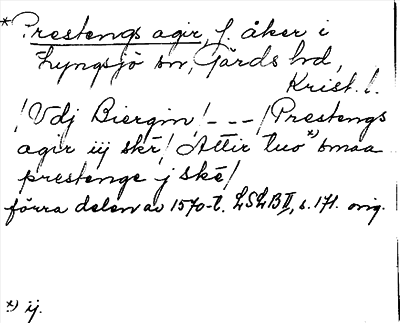 *Prestengs agir, f. åker i
Lyngsjö sn, Gärds hd,
Krist. l.
/Vdj Biergin/ - - - /Prestengs
agir iij skē/ Attir tuo*) smaa
prestenge j skē/
förra delen av 1570-t. LSLB II, s. 171. orig.
*) ij.